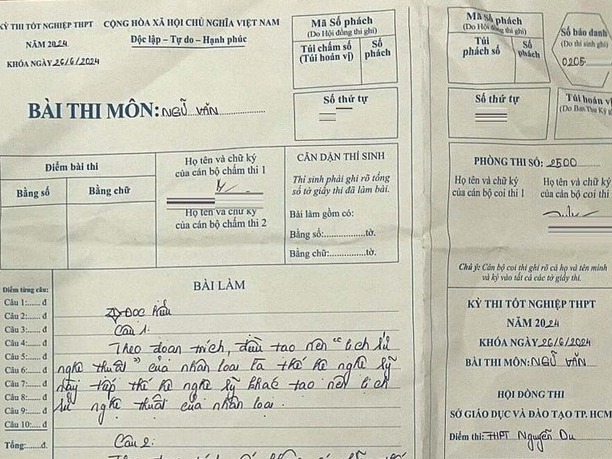 KỲ THI TỐT NGHIỆP THPT
CỘNG HÒA XÃ HỘI CHỦ NGHĨA VIỆT NAM
NĂM 2024
Độc lập - Tự do - Hạnh phúc
KHÓA NGÀY 26/6/2024
BÀI THI MÔN: NGỮ VĂN
Mã Số phách
(Do Hội đồng thi ghi)
Túi chấm số
(Túi hoán vị)
Số
phách
Số thứ tự
Mã Số phách
(Do Hội đồng thi ghi)
Túi
phách số
Số
phách
Số báo danh
(Do thí sinh ghi)
0205
Số thứ tự
Túi hoán vị
(Do Ban Thư Ký
Điểm bài thi
Bằng số
Bằng chữ
Họ tên và chữ ký
của cán bộ chấm thi 1
Họ tên và chữ ký
của cán bộ chấm thi 2
CĂN DẶN THÍ SINH
Thí sinh phải ghi rõ tổng
số tờ giấy thi đã làm bài.
Bài làm gồm có:
Bằng số:...............tờ.
Bằng chữ:.............tờ.
PHÒNG THI SỐ: 2500
Họ tên và chữ ký
của cán bộ coi thi 1
Họ tên và chữ ký
của cán bộ coi thi
Chú ý: Cán bộ coi thi ghi rõ họ và tên mình
và ký vào tất cả các tờ giấy thi.
Điểm từng câu:
Câu 1:...... đ
Câu 2:...... đ
Câu 3:...... đ
Câu 4:...... đ
Câu 5:...... đ
Câu 6:...... đ
Câu 7:...... đ
Câu 8:...... đ
Câu 9:...... đ
Câu 10:..... đ
Tổng:.......đ.
BÀI LÀM
I Đọc hiểu
Câu 1:
Theo đoạn trích, điều tạo nên "lịch sử
nghệ thuật" của nhân loại là thế hệ nghệ sỹ
này tiếp thế hệ nghệ sỹ khác tạo nên lịch
sử nghệ thuật của nhân loại.
Câu 2:
KỲ THI TỐT NGHIỆP THPT
NĂM 2024
KHÓA NGÀY 26/6/2024
BÀI THI MÔN: NGỮ VĂN
HỘI ĐỒNG THI
SỞ GIÁO DỤC VÀ ĐÀO TẠO TP. HCM
Điểm thi: THPT Nguyễn Du